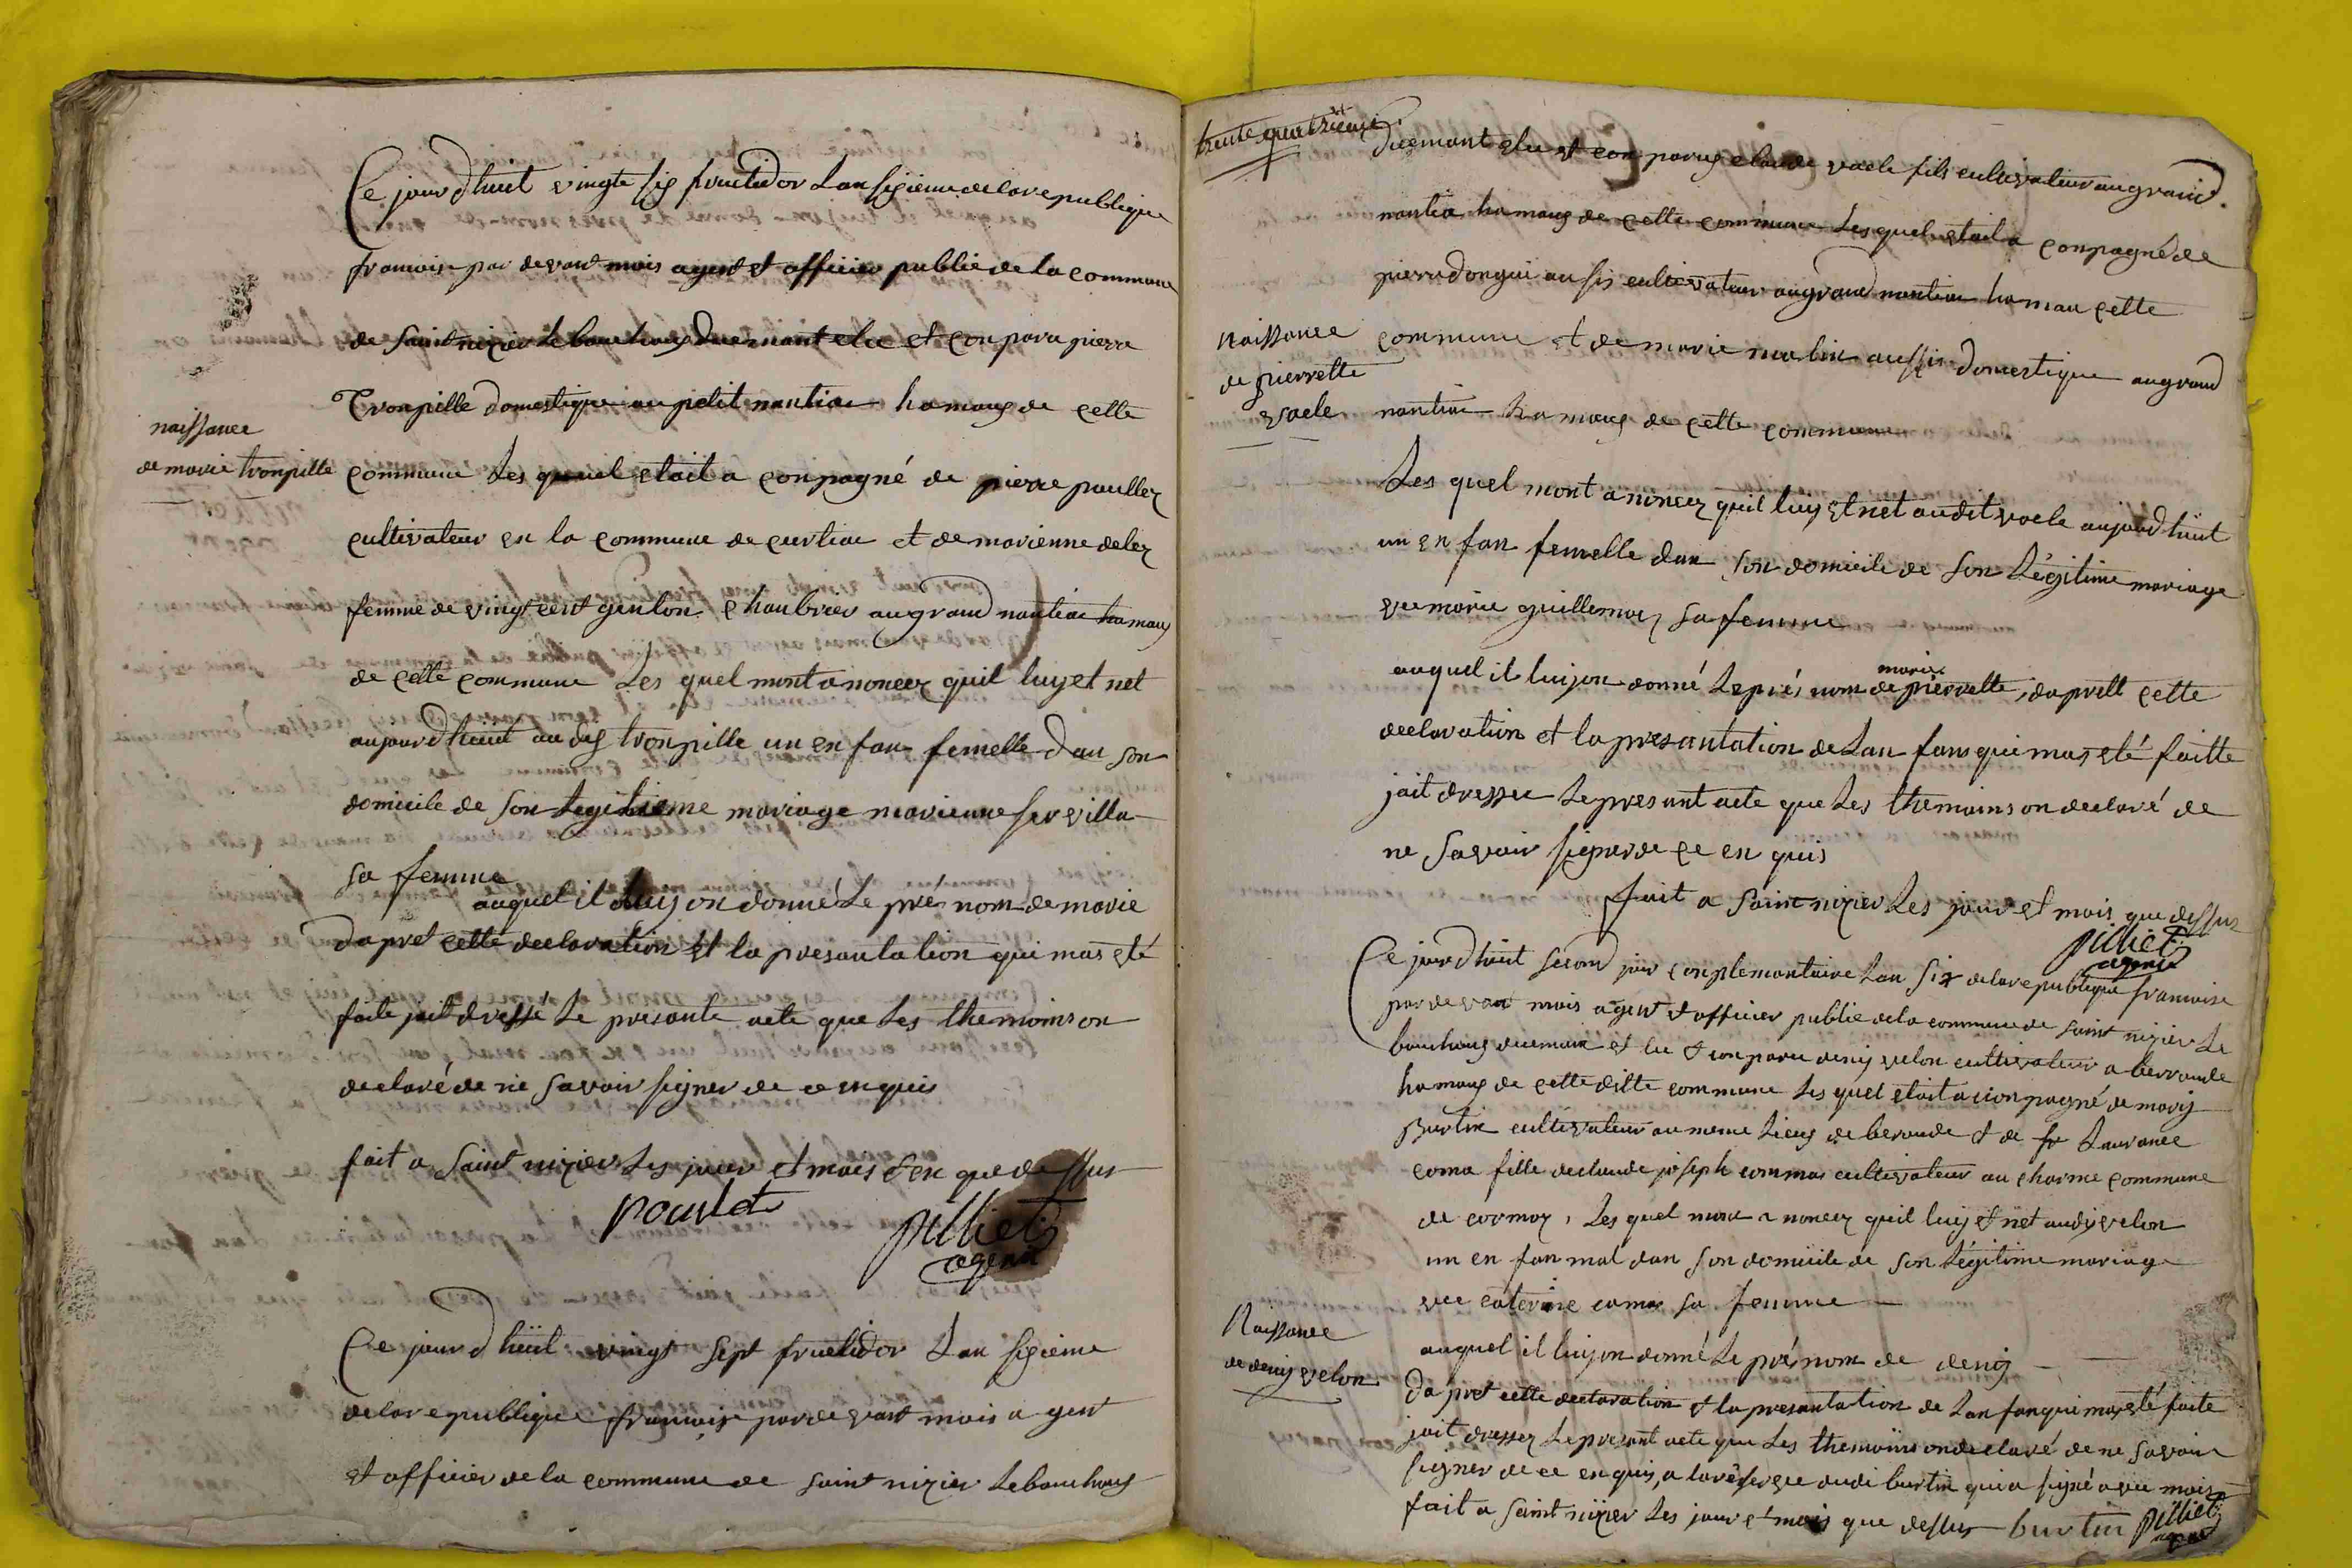 Ce jourd huit vingte six fructidor Lan sixieme de la republique
francoise par devant mois agent et officier public de la commune
de Saint nizier le bouchoux duemant elu et conparu pierre
tronpille domestique au petit nantia hamaux de cette
naissance
de marie tronpille
commune Les quel etait a conpagné de pierre paullez
cultivateur en la commune de curtia et de marienne delez
femme de vingt cent genton chanbrier au grand nantia hamaux
de cette commune Les quel mont anoncez quil luy et net
aujourdhuit au dis tronpille un en fan femelle dan son
domicile de son legitieme mariage marienne servilla
sa femme
auquel il luy on donné Le pre nom de marie
dapret cette declaration et la presantation qui mas eté
faite jait dressé Le presante acte que Les themoins on
declaré de ne savoir signer de ce enquis
fait a Saint nizier Les jour et mois et en que dessus
poulet
pilliet
agent
Ce jourd huit vingt sept fructidor Lan sixieme
de la republique francoise par devant mois agent
et officier de la commune de saint nizier Lebouchoux
trente quatrieme
duemant elu et conparus claude vacle fils cultivateur au grand
nantia hamaux de cette commune Les quel etait a conpagné de
pierre dongui aussi cultivateur au grand nantia hamau cette
naissance
de pierrette
vacle
commune et de marie marlin aussi domestique au grand
nantia hamaux de cette commune
Les quel mont anoncez quil luy et net audit vacle aujourdhuit
un en fan femelle dan son domicile de son Légitime mariage
vec marie guillemoz sa femme
marie
auquel il luy on donné Le pré nom de pierrette, daprett cette
declaration et la presantation de Lan fans qui mas eté faitte
jait dresser Le presant acte que Les themoins on declaré de
ne savoir signer de ce en quis
fait a saint nizier Les jour et mois que dessus
pilliet
agent
Ce jourd huit second jour conplemantaire Lan six de la republique francoise
par devant mois agent et officier public de la commune de saint nizier Le
bouchoux duemant et lu et conparu denis velon cultivateur a berroude
hamaux de cette ditte commune Les quel etait aconpagné de marij
burtin cultivateur au meme Lieux de beroude et de Laurance
coma fille de claude joseph commas cultivateur au charme commune
de cormoz, Les quel mont a noncez quil luy et net audis velon
un en fan mal dan son domicile de son Légitime mariage
vec caterine comas sa femme
Naissance
de denis velon
auquel il luy on donné Le pré nom de denis
dapret cette declaration et la presantation de Lan fan qui mas eté faite
jait dresser Le presant acte que Les themoins on declaré de ne savoir
signer de ce enquis, a la réserve audi burtin qui a signé avec mois
fait a saint nizier Les jour et mois que dessus burtin pilliet
agent